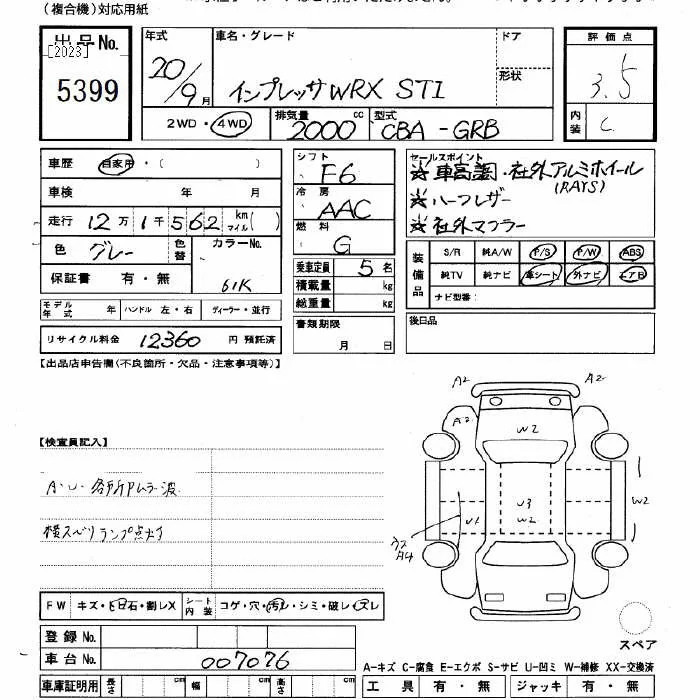 (複合機)対応用紙
出品No.
[2023]
5399
年式
20/9月
車名・グレード
インプレッサWRX STI
ドア
形状
2WD・4WD
排気量
2000cc
型式
CBA-GRB
評価点
3.5
内装
C
車歴 自家用・( )
車検 年 月
走行 12万1千562 km マイル( )
色 グレー
色替
カラーNo.
61K
保証書 有・無
モデル年式 年 ハンドル 左・右 ディーラー・並行
リサイクル料金 12360円 預託済
シフト
F6
冷房
AAC
燃料
G
乗車定員 5名
積載量 kg
総重量 kg
書類期限
月 日
セールスポイント
☆車高調・社外アルミホイール
(RAYS)
☆ハーフレザー
☆社外マフラー
装備品
S/R 純A/W P/S P/W ABS
純TV 純ナビ 革シート 外ナビ エアB
ナビ型番:
後日品
【出品店申告欄(不良箇所・欠品・注意事項等)】
【検査員記入】
A・U・各所PムラB波
横スベリランプ点灯
A2
A2
A2
W2
U3
W2
U1
W2
A4
FW キズ・ヒ飛石・割レX
シート内装 コゲ・穴・汚レ・シミ・破レ・スレ
登録No.
車台No. 007076
車庫証明用 長さ cm 幅 cm 高さ cm
スペア
A-キズ C-腐食 E-エクボ S-サビ U-凹ミ W-補修 XX-交換済
工具 有・無 ジャッキ 有・無